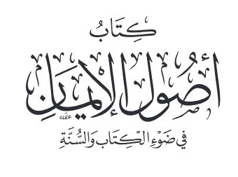 كِتَابُ
أُصُولِ الإِيمَانِ
فِي ضَوْءِ الْكِتَابِ وَالسُّنَّةِ